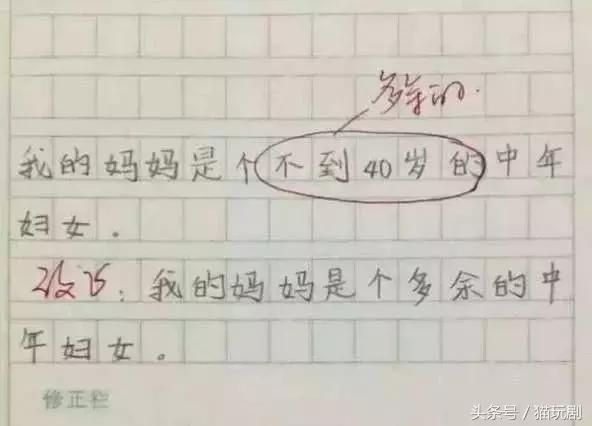 多余的.
我的妈妈是个不到40岁的中年
妇女。
改正：我的妈妈是个多余的中
年妇女。
修正栏
头条号／猫玩剧